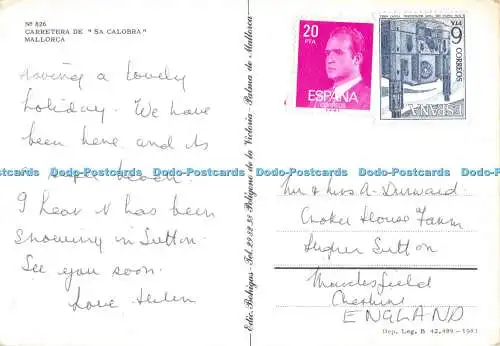 Nº 826
CARRETERA DE "SA CALOBRA"
MALLORCA
Having a lovely
holiday. We have
been here and its
beach.
I hear it has been
snowing in Sutton.
See you soon.
Love Helen
Edic. Bohigas - Tel. 29.52.58 Polígono de la Victoria - Palma de Mallorca
20
PTA
ESPAÑA
CORREOS
6 PTA
CORREOS
ESPAÑA
Mr & Mrs A. Durward
Croker House Farm
Higher Sutton
Macclesfield
Cheshire
ENGLAND
Dep. Leg. B 42.499 - 1981
Dodo-Postcards Dodo-Postcards Dodo-Postcards Dodo-Postcards Dodo-Postcards